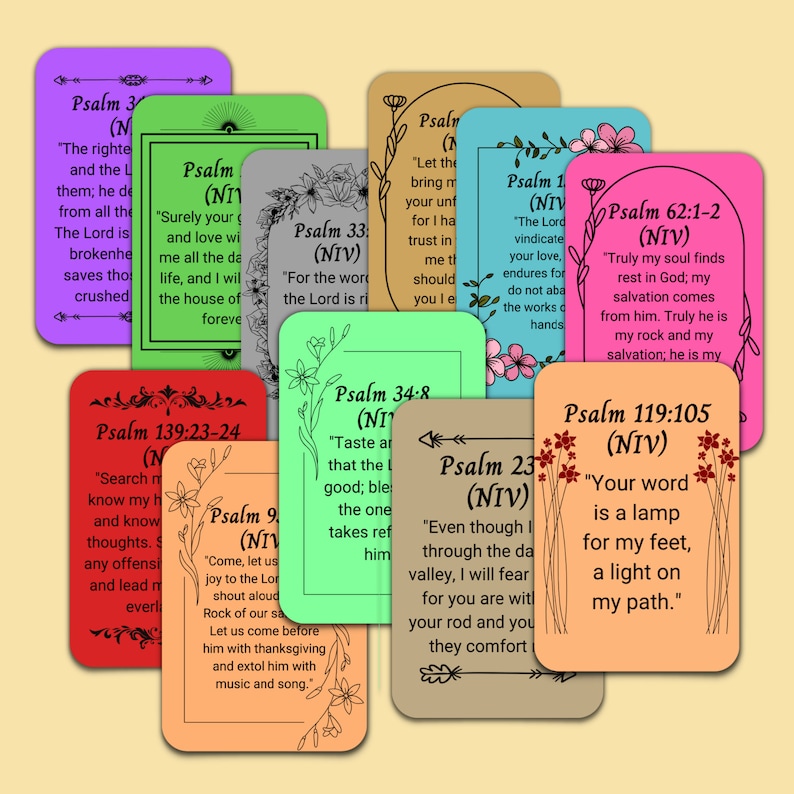 Psalm 34
(N
"The righte
and the L
them; he de
from all the
The Lord is
brokenhe
saves thos
crushed
Psalm
(NIV
"Surely your g
and love wi
me all the da
life, and I wil
the house of
forever
Psalm 33:
(NIV)
"For the word
the Lord is ri
Psalm
(N
"Let the
bring m
your unf
for I ha
trust in
me th
should
you I e
Psalm 1
(NIV
"The Lord
vindicate
your love,
endures for
do not aba
the works o
hands.
Psalm 62:1-2
(NIV)
"Truly my soul finds
rest in God; my
salvation comes
from him. Truly he is
my rock and my
salvation; he is my
Psalm 139:23-24
(N
"Search m
know my h
and know
thoughts. S
any offensi
and lead m
everla
Psalm 9
(NIV
"Come, let us
joy to the Lor
shout aloud
Rock of our sa
Let us come before
him with thanksgiving
and extol him with
music and song."
Psalm 34:8
(NIV
"Taste an
that the L
good; bles
the one
takes ref
him
Psalm 23
(NIV)
"Even though I
through the da
valley, I will fear
for you are with
your rod and you
they comfort
Psalm 119:105
(NIV)
"Your word
is a lamp
for my feet,
a light on
my path."